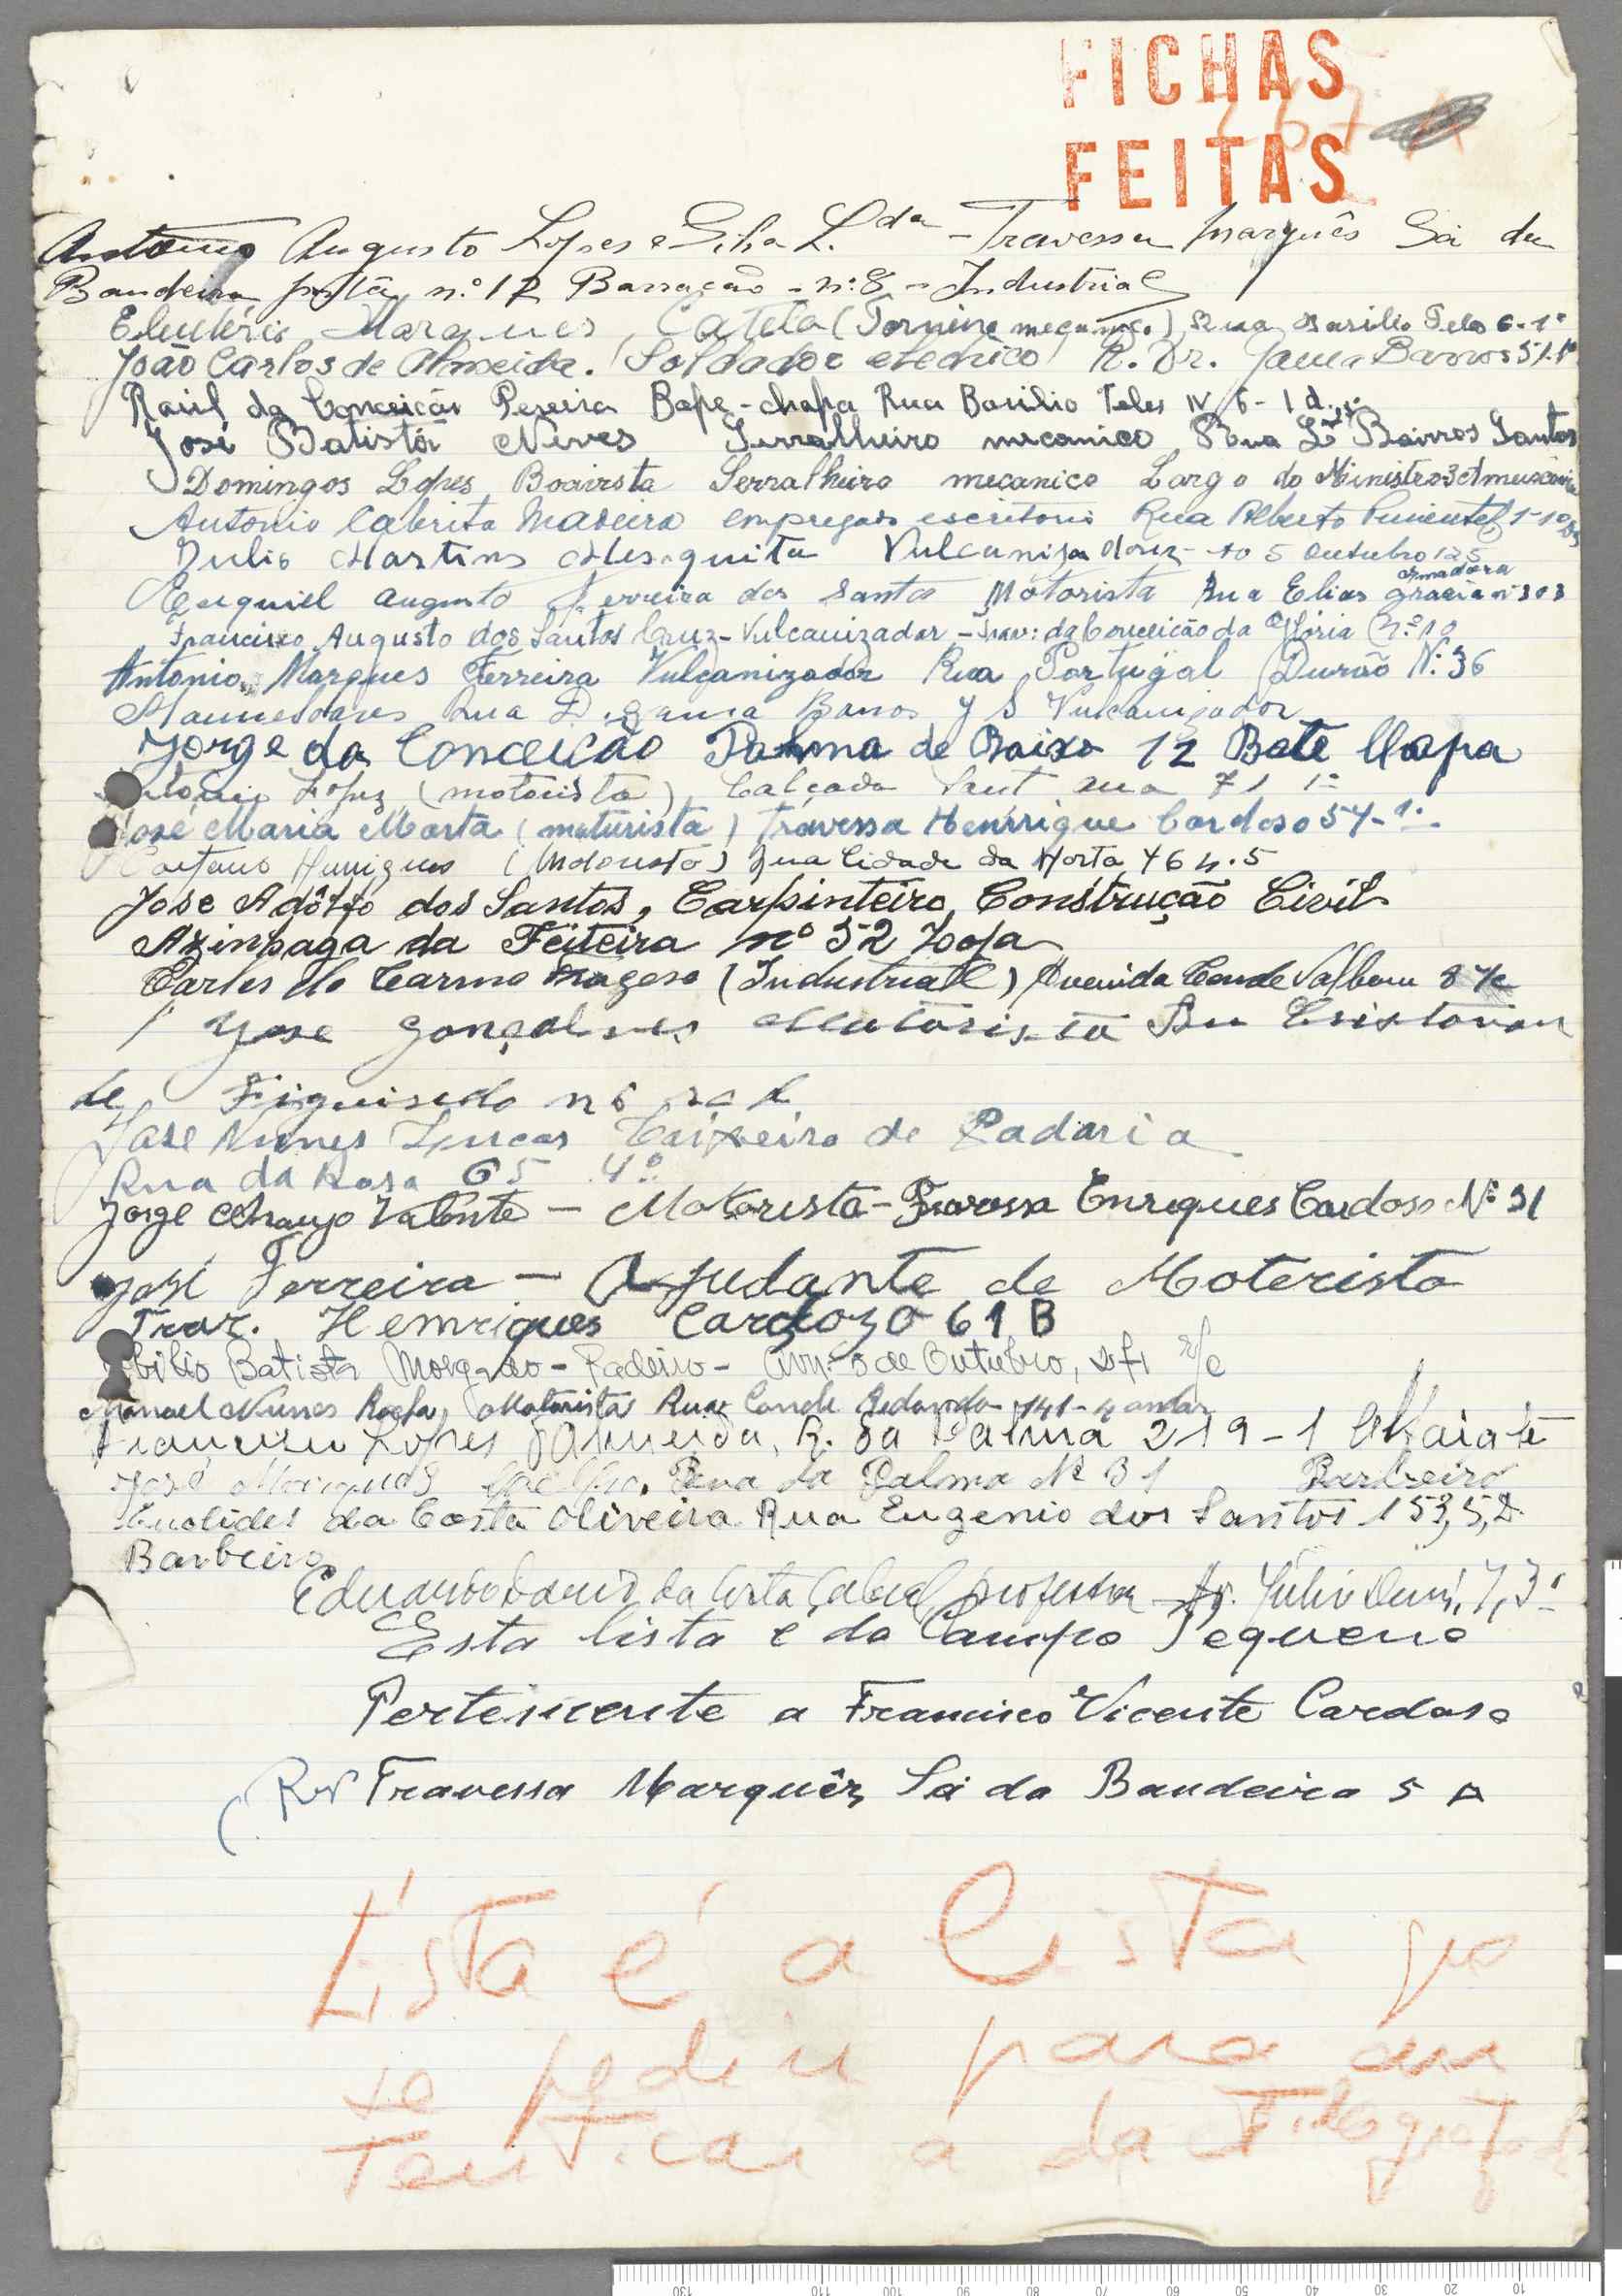 FICHAS
FEITAS
Antonio Augusto Lopes e Silva L.da - Travessa Marquês Sá da
Bandeira n.º 12 Barracão - n.º 8 - Industrial
Marques Catela (Torneiro mecanico) Rua Basilio Teles 6-1º
João Carlos de Almeida. Soldador R. Dr. Gama Barros 51.1º
Raúl da Conceição Pereira Bape-chapa Rua Basilio Teles Nº 6-1 d.
José Batista Neves Serralheiro mecanico Rua Barros Santos
Domingos Lopes Boavista Serralheiro mecanico Largo do Ministro 3
Antonio Cabrita Madeira empregado escritorio Rua Alberto Pimentel
Julio Martins Mesquita Vulcanizador 5 Outubro 125
Amadora
Ezequiel Augusto Ferreira dos Santos Motorista Rua Elias Gracia nº 303
Francisco Augusto dos Santos Cruz - Vulcanizador - Trav: da Conceição da Glória nº 10
Antonio Marques Ferreira Vulcanizador Rua Portugal Durão N.º 36
Rua D. Gama Barros Vulcanizador
Jorge da Conceição Palma de Baixo 12 Bate Chapa
Lopes (motorista) Calçada Sant ana 71 1º
José Maria Marta (muturista) Travessa Henrrique Cardoso 54-1º
Caetano Rua Cidade da Horta
José Adôlfo dos Santos, Carpinteiro, Construção Civil
Azinhaga da Feiteira nº 52 Loja
Carlos do Carmo (Industrial) Avenida Conde Valbom
Jose Gonçalves Muturista Cristovan
de Figuiredo
Jose Nunes Lucas Caixeiro de Padaria
Rua da Rosa 65 4º
Jorge Araujo Valente - Motorista - Travessa Enriques Cardoso Nº 31
José Ferreira - Ajudante de Moterista
Trav. Henriques Cardozo 61 B
Abilio Batista Morgado - Padeiro - Avn. 5 de Outubro, r/c
Manuel Nunes Motorista Rua Conde Redondo 141-4 andar
Francisco Lopes d'Almeida, R. da Palma 219-1 Alfaiate
José Marques Rua da Palma Nº 31 Barbeiro
Euclides da Costa Oliveira Rua Eugenio dos Santos 153,5,D.
Barbeiro
Eduardo da Costa Cabral professor 7, 3º
Esta lista é do Campo Pequeno
Pertencente a Francisco Vicente Cardoso
Travessa Marquêz Sá da Bandeira 5 A
Esta é a lista
se pediu para au
tenticar a dactilografada